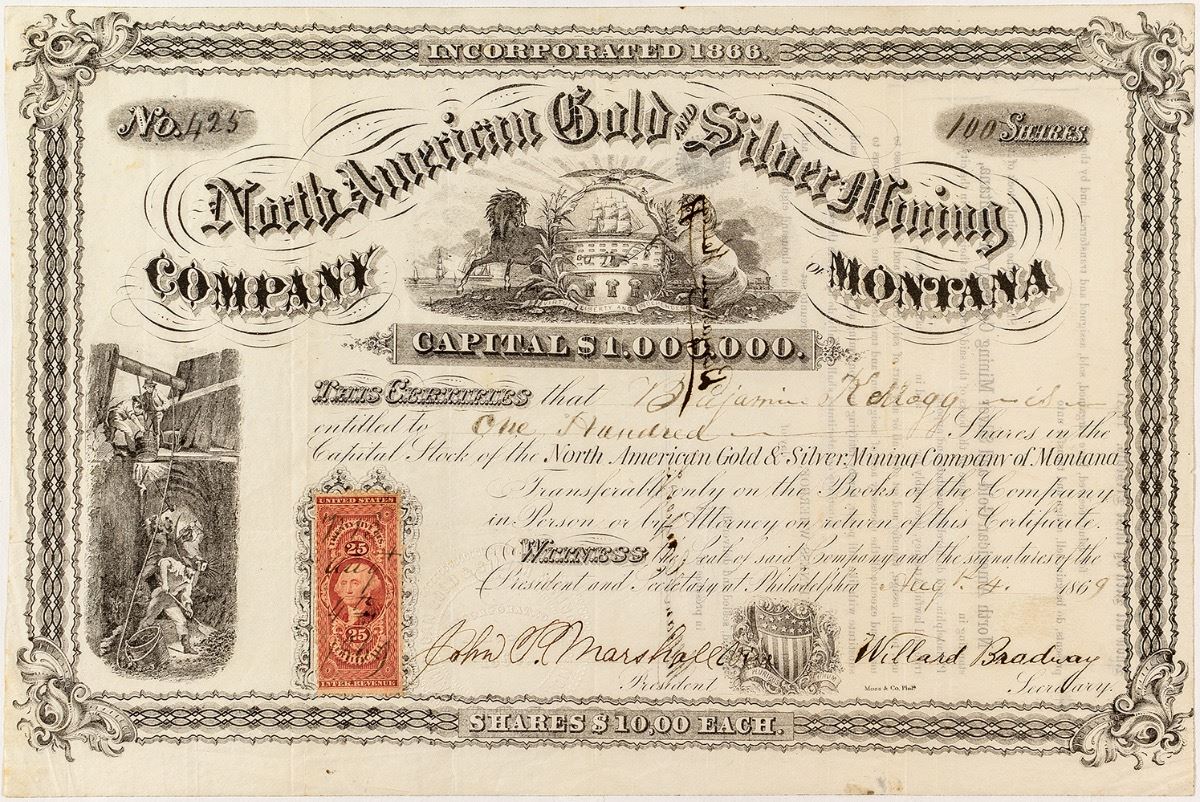 INCORPORATED 1866.
No. 425
100 SHARES
North American Gold AND Silver Mining
COMPANY OF MONTANA
CAPITAL $1.000.000.
THIS CERTIFIES that Benjamin Kellogg is
entitled to One Hundred Shares in the
Capital Stock of the North American Gold & Silver Mining Company of Montana
Transferable only on the Books of the Company
in Person or by Attorney on return of this Certificate.
WITNESS the Seal of said Company and the signatures of the
President and Secretary at Philadelphia Augt. 4. 1869
UNITED STATES
25
25
CERTIFICATE
INTER. REVENUE
John P. Marshall
President
Moss & Co. Phila
Willard Bradway
Secretary.
SHARES $10,00 EACH.